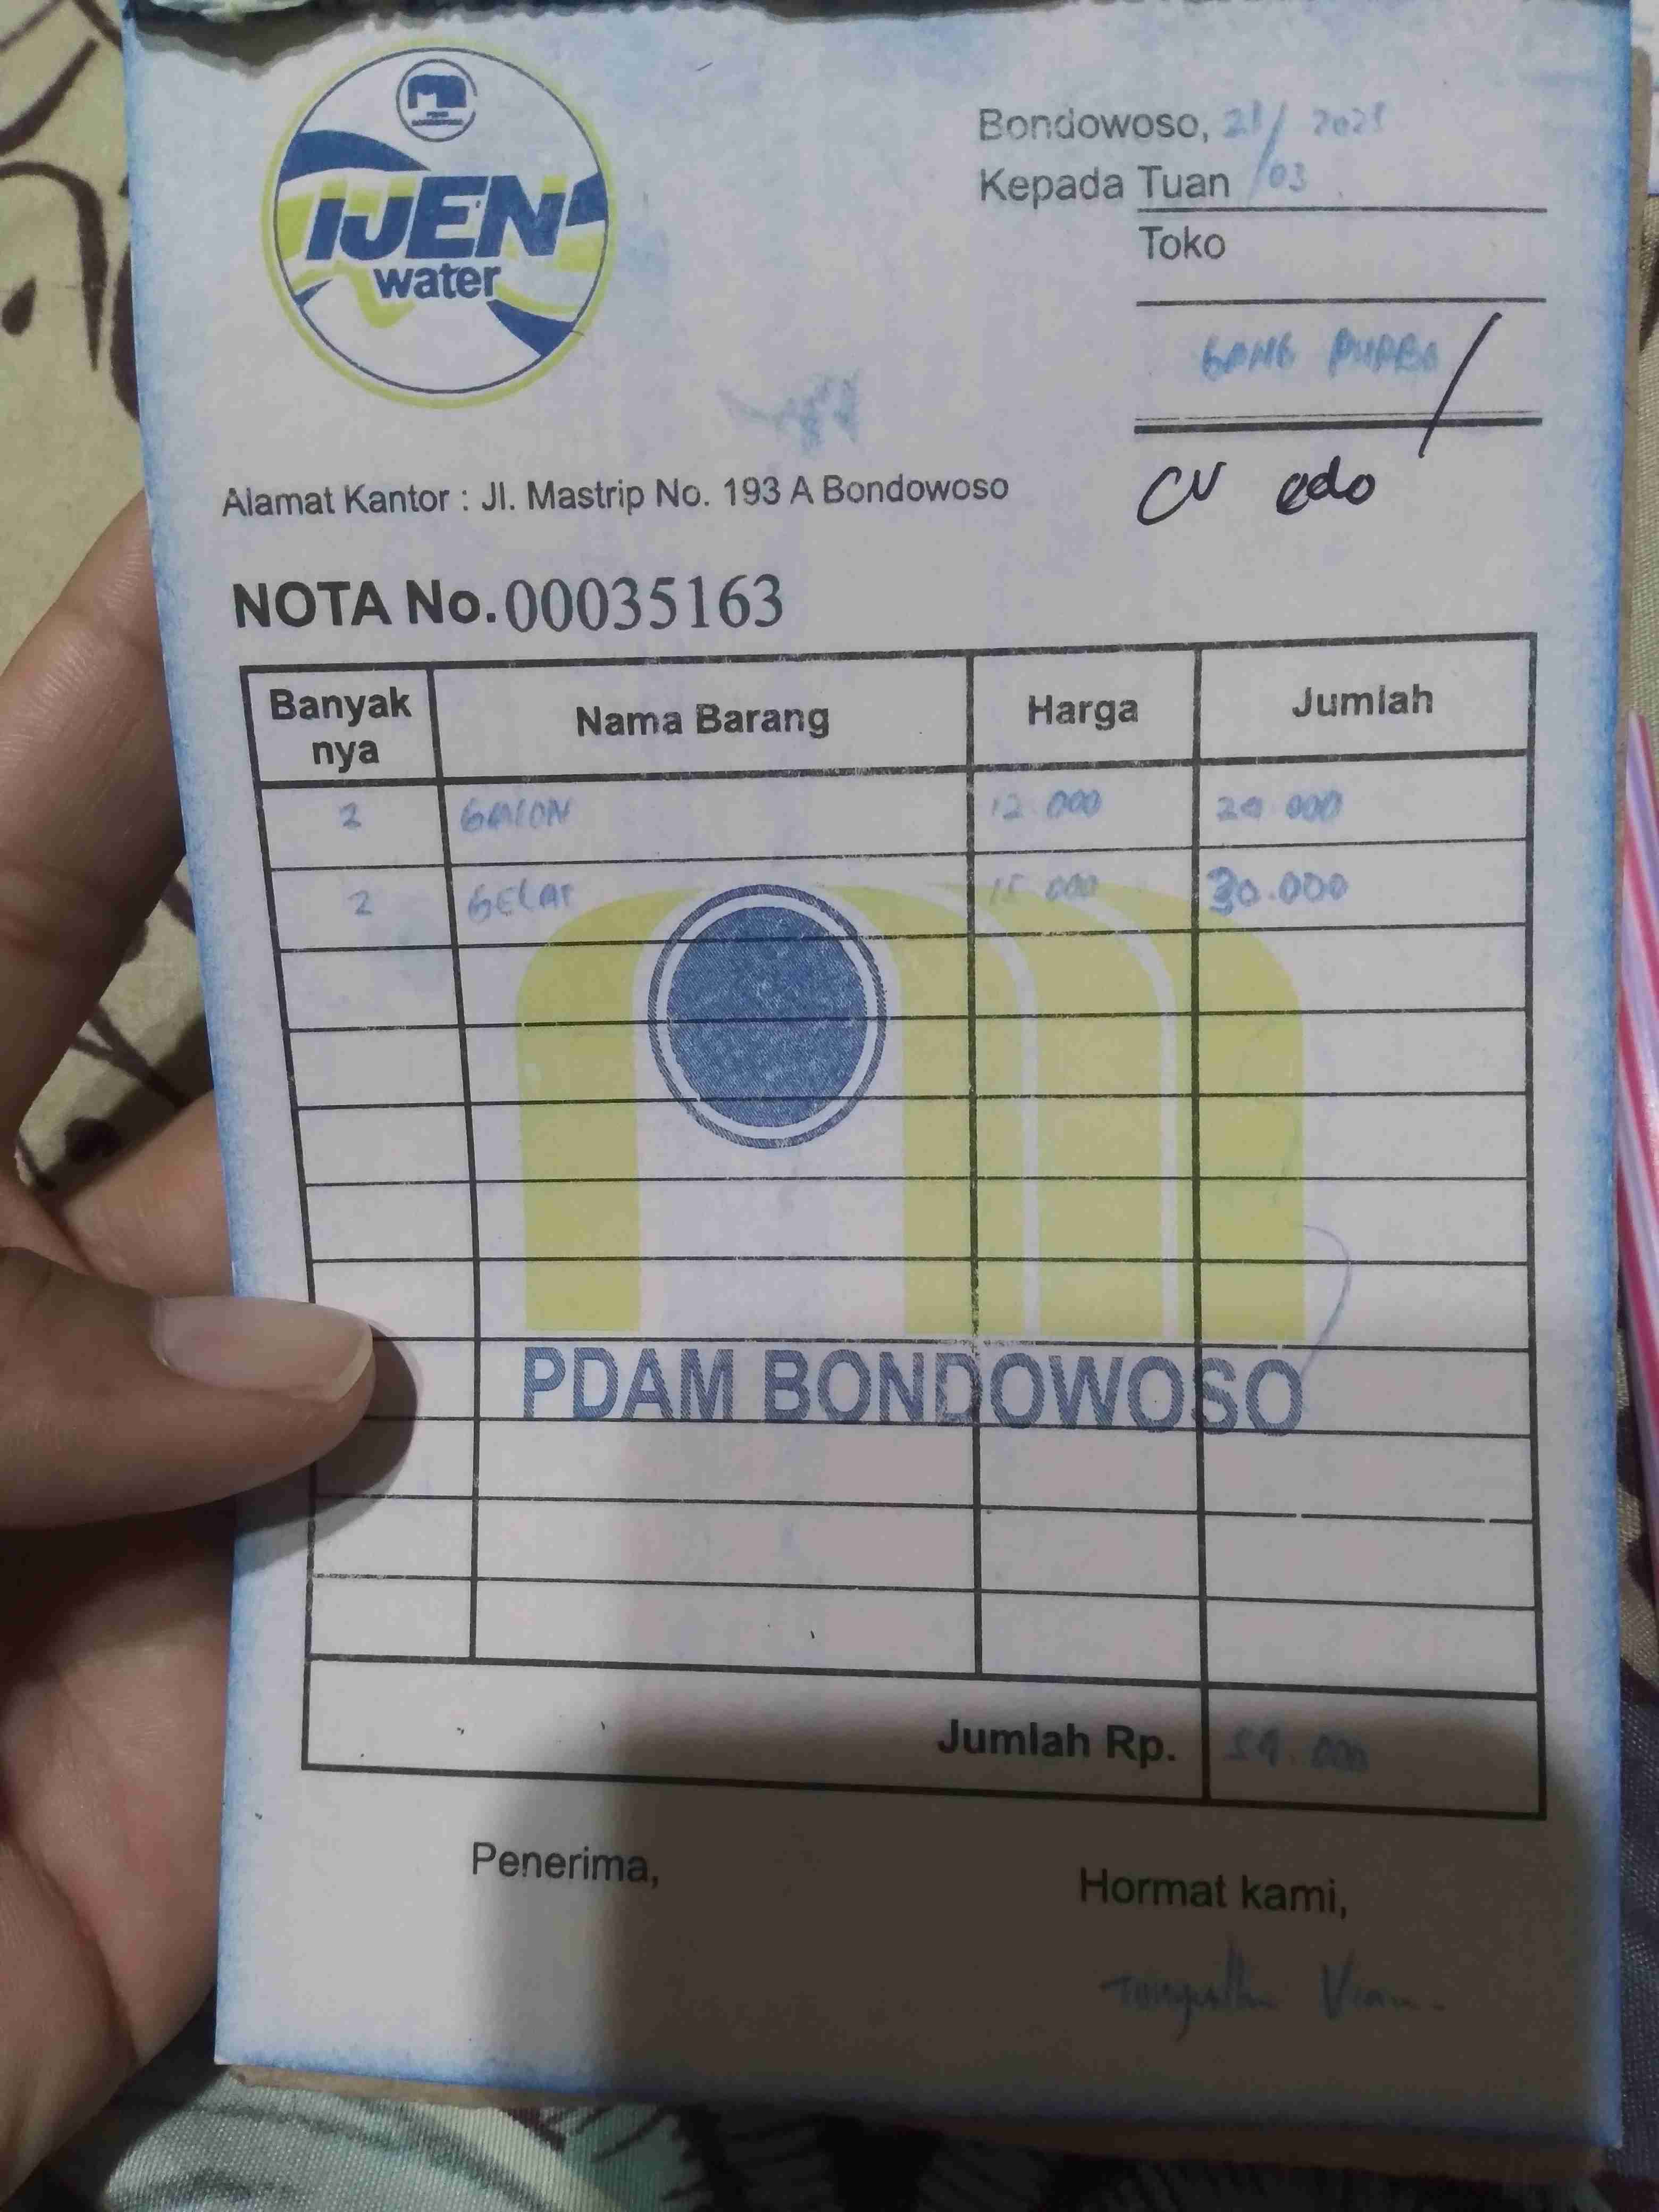 IJEN
water
Bondowoso, 21/03 2025
Kepada Tuan
Toko
GANG PURBO /
CV edo
Alamat Kantor : Jl. Mastrip No. 193 A Bondowoso
NOTA No. 00035163
Banyak nya Nama Barang Harga Jumlah
2 GALON 12 000 24 000
2 GELAS 15 000 30.000
PDAM BONDOWOSO
Jumlah Rp. 54.000
Penerima,
Hormat kami,